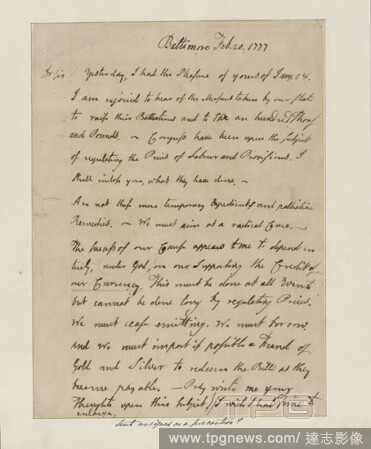 Baltimore Feb. 20. 1777
Dr sir Yesterday, I had the Pleasure of yours of Jany. 24.
I am rejoiced to hear of the Measures taken by our State
to raise their Battalions and to Tax an hundred Thous
and Pounds. — Congress have been upon the Subject
of regulating the Prices of Labour and Provisions. I
shall inclose you, what they have done. —
Are not these mere temporary Expedients and palliative
Remedies. — We must aim at a radical Cure. —
The Success of our Cause appears to me to depend in
tirely, under God, on our Supporting the Credit of
our Currency. This must be done at all Events
but cannot be done long by regulating Prices.
We must cease emitting. We must borrow
and we must import if possible a Fund of
Gold and Silver to redeem the Bills as they
become payable. — Pray write me your
Thoughts upon this Subject. I wish I had Time to
enlarge.
Sent unsigned as a precaution?
TPG
www.tpgnews.com / 達志影像